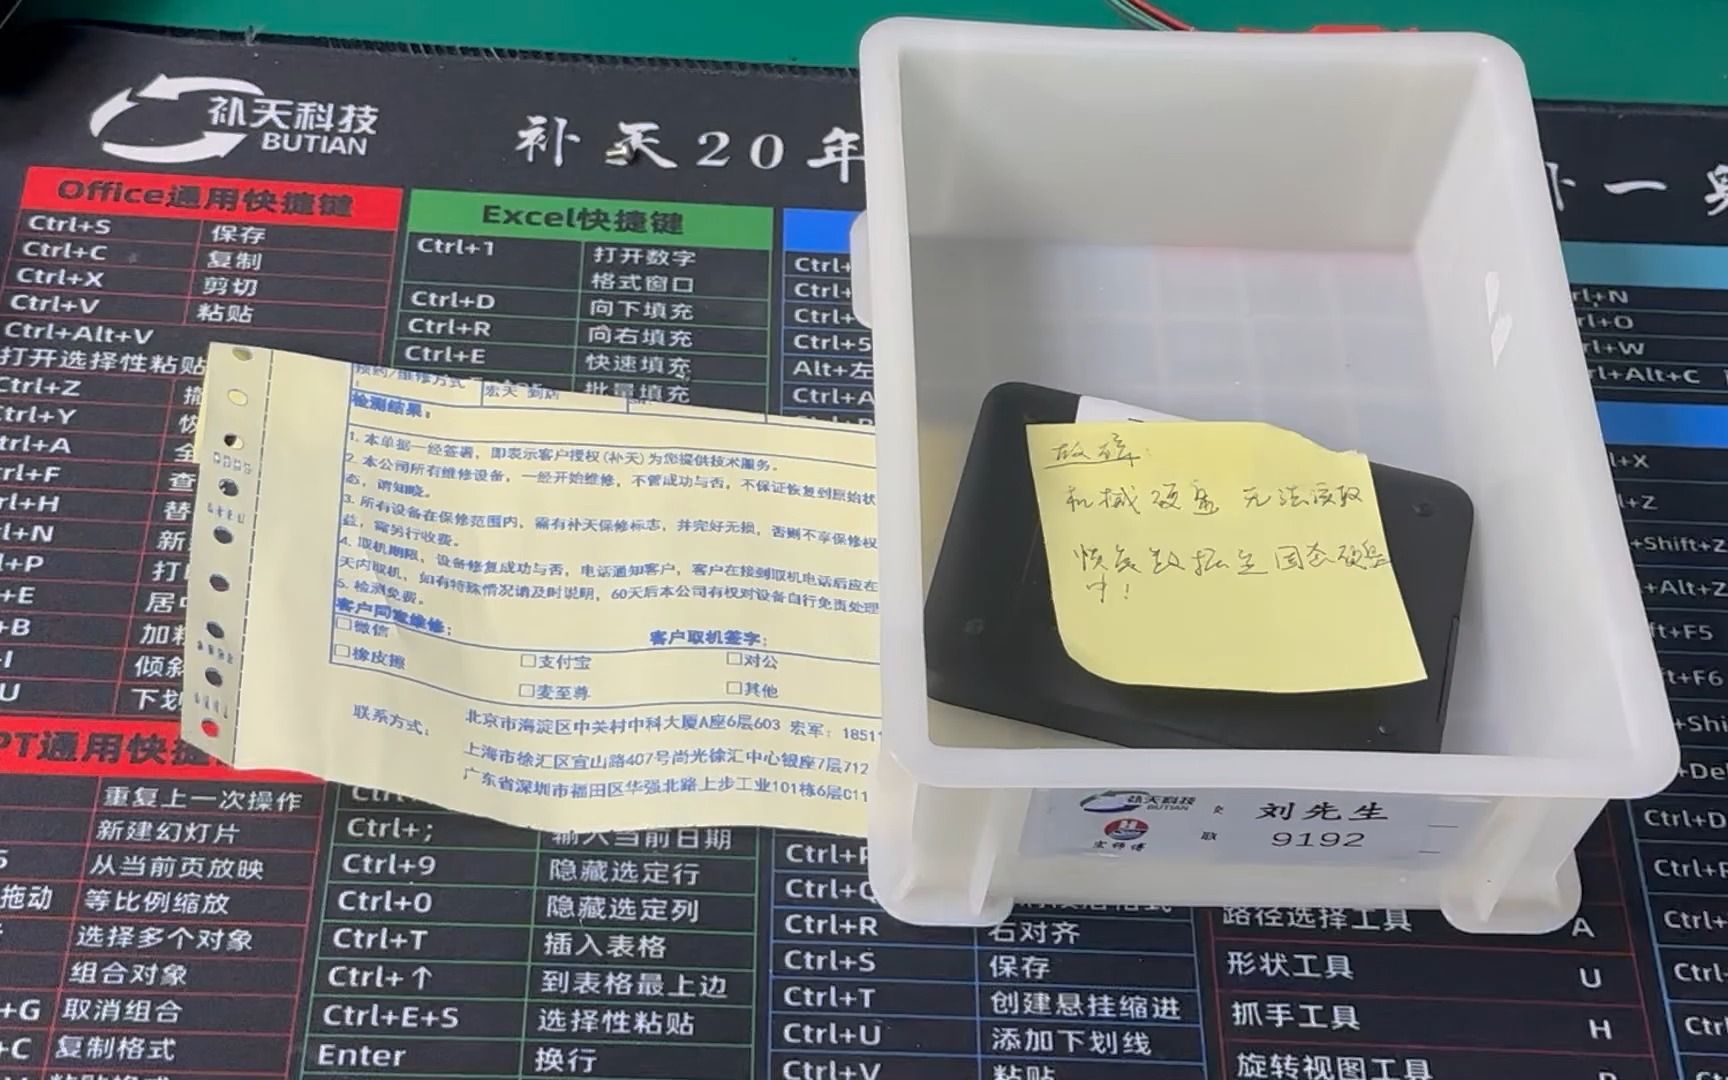 补天科技
BUTIAN
补天20年
补一
Office通用快捷键
Ctrl+S 保存
Ctrl+C 复制
Ctrl+X 剪切
Ctrl+V 粘贴
Ctrl+Alt+V
打开选择性粘贴
Ctrl+Z
Ctrl+Y
Excel快捷键
Ctrl+1 打开数字
格式窗口
Ctrl+D 向下填充
Ctrl+R 向右填充
Ctrl+E 快速填充
批量填充
预约/维修方式 宏天 到店
检测结果：
1. 本单据一经签署，即表示客户授权(补天)为您提供技术服务。
2. 本公司所有维修设备，一经开始维修，不管成功与否，不保证恢复到原始状
态，请知晓。
3. 所有设备在保修范围内，需有补天保修标志，并完好无损，否则不享保修权
益，需另行收费。
4. 取机期限，设备修复成功与否，电话通知客户，客户在接到取机电话后应在
天内取机，如有特殊情况请及时说明，60天后本公司有权对设备自行免责处理
5. 检测免费。
客户同意维修：
客户取机签字：
□微信 □支付宝 □对公
□橡皮擦 □麦至尊 □其他
联系方式：
北京市海淀区中关村中科大厦A座6层603 宏军：18511
上海市徐汇区宜山路407号尚光徐汇中心银座7层712
广东省深圳市福田区华强北路上步工业101栋6层C11
故障：
机械硬盘 无法读取
恢复数据至固态硬盘
中！
补天科技
BUTIAN
刘先生
取 9192
PT通用快捷
重复上一次操作
新建幻灯片
从当前页放映
拖动 等比例缩放
选择多个对象
组合对象
+G 取消组合
+C 复制格式
Ctrl+; 输入当前日期
Ctrl+9 隐藏选定行
Ctrl+0 隐藏选定列
Ctrl+T 插入表格
Ctrl+↑ 到表格最上边
Ctrl+E+S 选择性粘贴
Enter 换行
Ctrl+R 右对齐
Ctrl+S 保存
Ctrl+T 创建悬挂缩进
Ctrl+U 添加下划线
Ctrl+V 粘贴
路径选择工具 A
形状工具 U
抓手工具 H
旋转视图工具